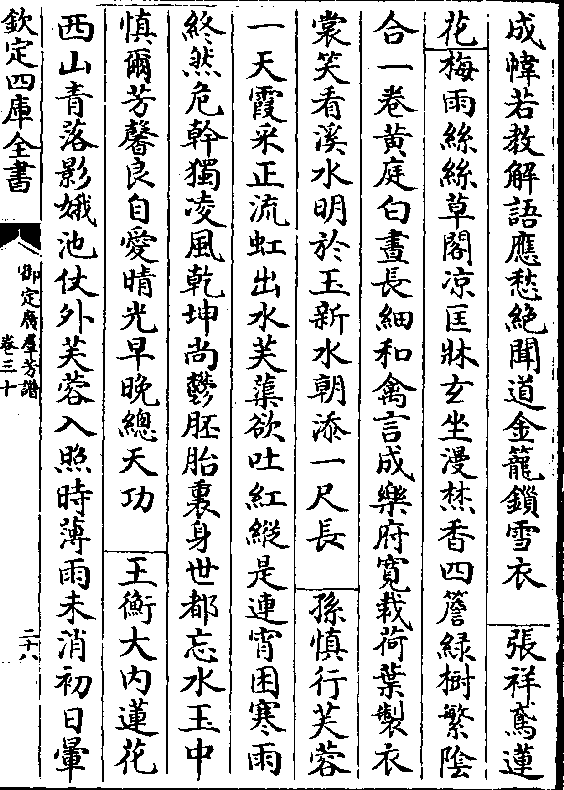 成幃若教解語應愁絶聞道金籠鎖雪衣　張祥鳶蓮
花梅雨絲絲草閣凉匡牀玄坐漫焚香四簷緑樹繁陰
合一卷黄庭白晝長細和禽言成樂府寛裁荷葉製衣
裳笑看溪水明於玉新水朝添一尺長　孫慎行芙蓉
一天霞采正流虹出水芙蕖欲吐紅縱是連宵困寒雨
終然危幹獨凌風乾坤尚鬱胚胎裏身世都忘水玉中
慎爾芳馨良自愛晴光早晚總天功　王衡大内蓮花
西山青落影娥池仗外芙蓉入照時薄雨未消初日暈
欽定四庫全書
御定廣羣芳譜
卷三十
二十八